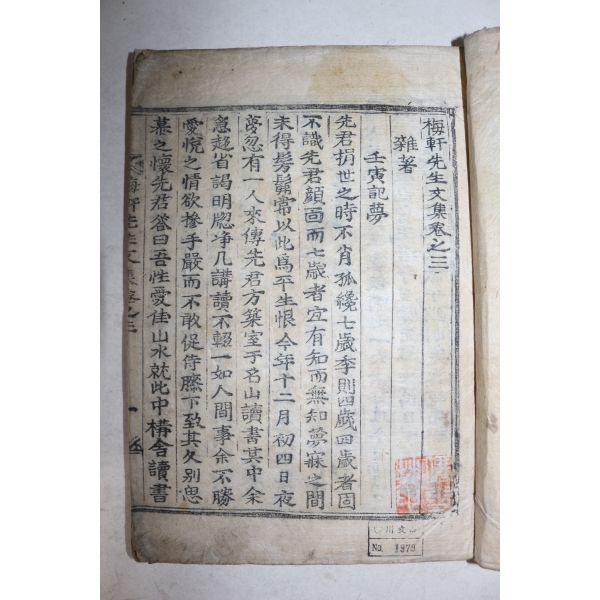 梅軒先生文集卷之三
雜著
壬寅記夢
先君捐世之時不肖孤纔七歲季則四歲四歲者固
不識先君顔面而七歲者宜有知而無知夢寐之間
未得髣髴常以此爲平生恨今年十二月初四日夜
夢忽有一人來傳先君方築室于名山讀書其中余
急趍省謁明牕净几講讀不輟一如人間事余不勝
愛悅之情欲摻手嚴而不敢促侍膝下致其久別思
慕之懷先君答曰吾性愛佳山水就此中構舍讀書
梅軒先生文集卷之三
一
No. 1979